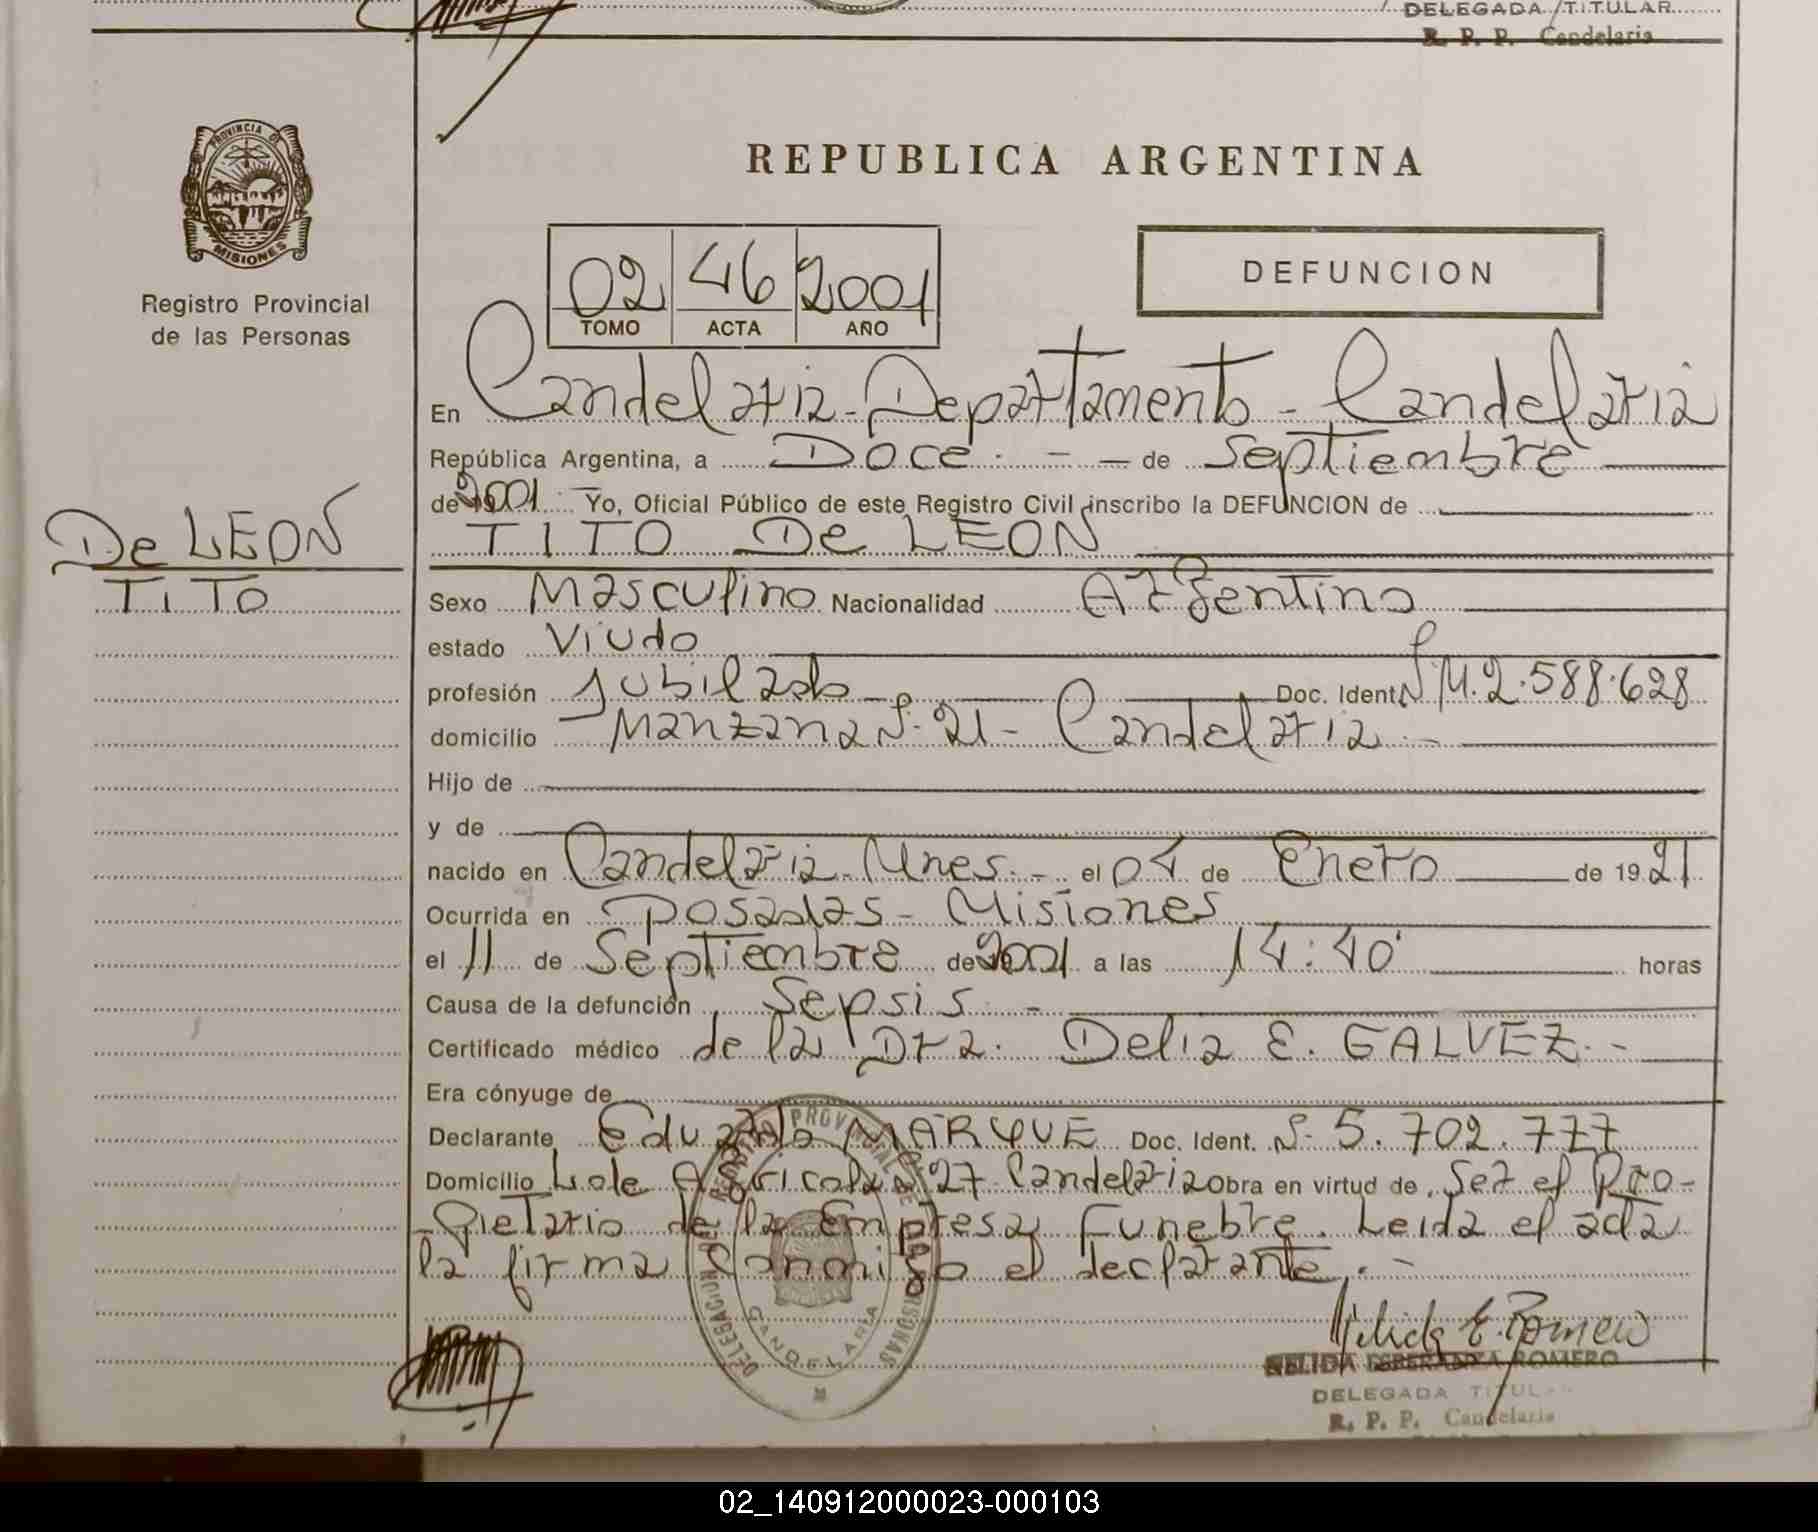 DELEGADA TITULAR
R. P. P. Candelaria
PROVINCIA DE
MISIONES
Registro Provincial
de las Personas
REPUBLICA ARGENTINA
02 46 2001
TOMO ACTA AÑO
DEFUNCION
En Candelaria - Departamento - Candelaria
República Argentina, a Doce - - de Septiembre
de 2001 Yo, Oficial Público de este Registro Civil inscribo la DEFUNCION de
TITO De LEON
De LEON
TITO
Sexo Masculino Nacionalidad Argentino
estado Viudo
profesión Jubilado - Doc. Ident. Nº M. 2.588.628
domicilio Manzana Nº 21 - Candelaria -
Hijo de
y de
nacido en Candelaria - Mnes. - el 04 de Enero de 1921
Ocurrida en Posadas - Misiones
el 11 de Septiembre de 2001 a las 14:40 horas
Causa de la defunción Sepsis -
Certificado médico de la Dra. Delia E. GALVEZ. -
Era cónyuge de
Declarante Eduardo MARQUE Doc. Ident. Nº 5.702.777
Domicilio Lote Agricola Nº 27 Candelaria Obra en virtud de Ser el Pro-
-pietario de la Empresa Funebre. Leida el acta
la firma Conmigo el declarante. -
REGISTRO PROVINCIAL DE LAS PERSONAS
DELEGACION
CANDELARIA
Nelida E. Romero
NELIDA ESPERANZA ROMERO
DELEGADA TITULAR
R. P. P. Candelaria
02_140912000023-000103